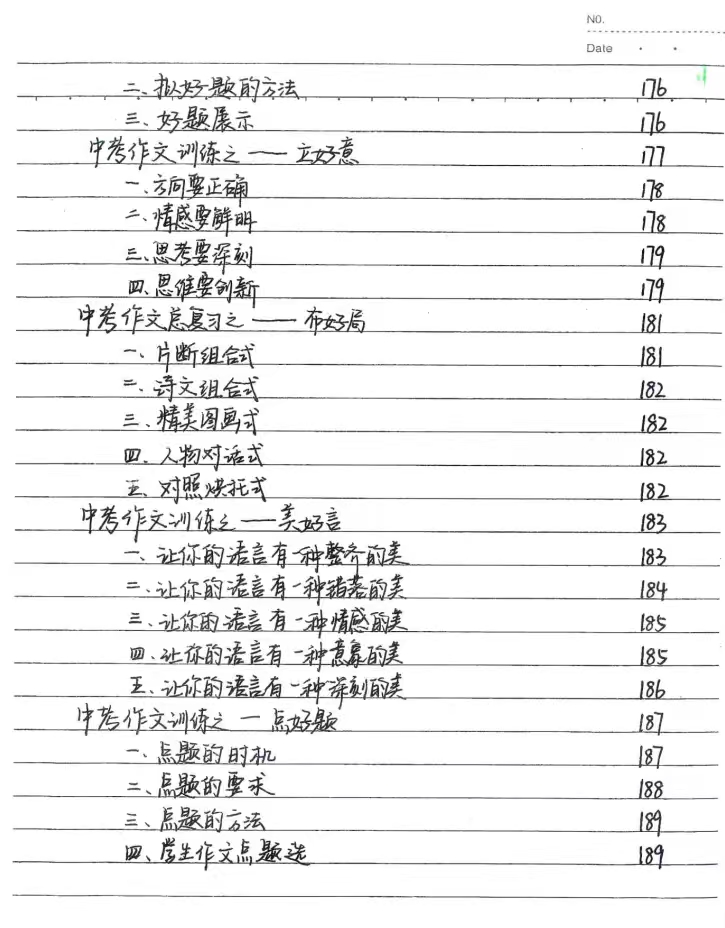 NO.
Date
二、拟好题的方法 176
三、好题展示 176
中考作文训练之——立好意 177
一、方向要正确 178
二、情感要鲜明 178
三、思考要深刻 179
四、思维要创新 179
中考作文总复习之——布好局 181
一、片断组合式 181
二、诗文组合式 182
三、精美图画式 182
四、人物对话式 182
五、对照烘托式 182
中考作文训练之——美好言 183
一、让你的语言有一种整齐的美 183
二、让你的语言有一种错落的美 184
三、让你的语言有一种情感的美 185
四、让你的语言有一种意象的美 185
五、让你的语言有一种深刻的美 186
中考作文训练之一点好题 187
一、点题的时机 187
二、点题的要求 188
三、点题的方法 189
四、学生作文点题选 189